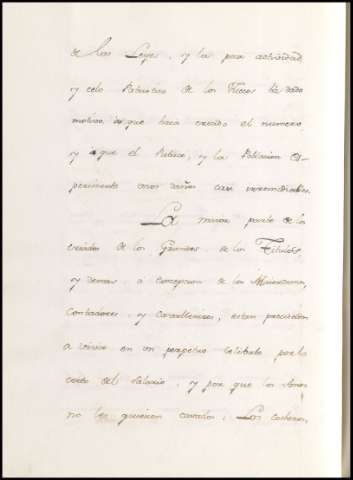 de las Leyes, y la poca actividad,
y celo Patriotico de los Vicios ha dado
motivo à que haya crecido el numero,
y à que el Publico, y la Poblacion es-
perimente unos daños casi irremediables.
La mayor parte de los
criados de los Grandes, de los Titulos,
y demas, à excepcion de los Maiordomos,
Contadores, y Cavallerizos, estan precisados
a vivir en un perpetuo celibato por lo
corto del Salario, y por que los Amos
no les quieren casados. Los cocheros,